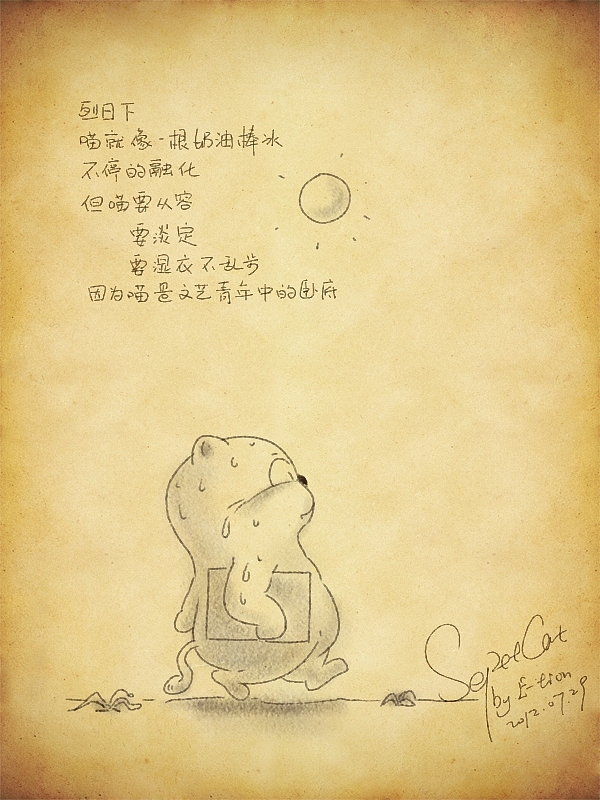 烈日下
喵就像一根奶油棒冰
不停的融化
但喵要从容
要淡定
要湿衣不乱步
因为喵是文艺青年中的卧底
SepetCat
by E-tion
2012.07.29